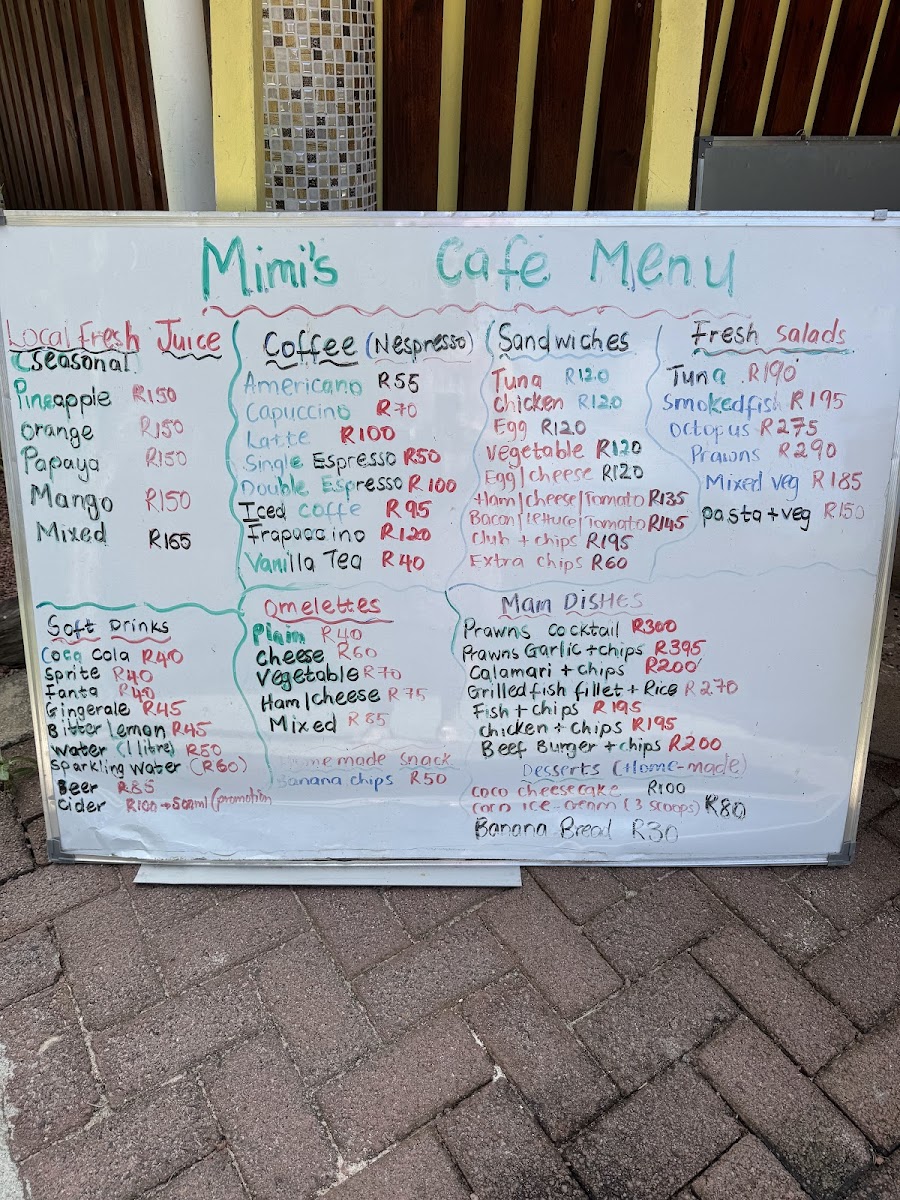 Mimi's Café Menu
Local Fresh Juice
(seasonal
Pineapple R150
Orange R150
Papaya R150
Mango R150
Mixed R165
Coffee (Nespresso)
Americano R55
Capuccino R70
Latte R100
Single Espresso R50
Double Espresso R100
Iced coffe R95
Frapuccino R120
Vanilla Tea R40
Sandwiches
Tuna R120
Chicken R120
Egg R120
Vegetable R120
Egg/cheese R120
Ham/cheese/Tomato R135
Bacon/Lettuce/Tomato R145
Club + chips R195
Extra chips R60
Fresh Salads
Tuna R190
Smokedfish R195
Octopus R275
Prawns R290
Mixed veg R185
pasta+veg R150
Soft Drinks
Coca Cola R40
Sprite R40
Fanta R40
Gingerale R45
Bitter lemon R45
Water (1 litre) R50
Sparkling Water (R60)
Beer R85
Cider R100 → 500ml (promotion
Omelettes
Plain R40
Cheese R60
Vegetable R70
Ham/cheese R75
Mixed R85
Home made Snack
Banana chips R50
Main Dishes
Prawns Cocktail R300
Prawns Garlic + chips R395
Calamari + chips R200
Grilled fish fillet + Rice R270
Fish + chips R195
chicken + chips R195
Beef Burger + chips R200
Desserts (Home-made)
coco cheesecake R100
corn ice-cream (3 scoops) R80
Banana Bread R30